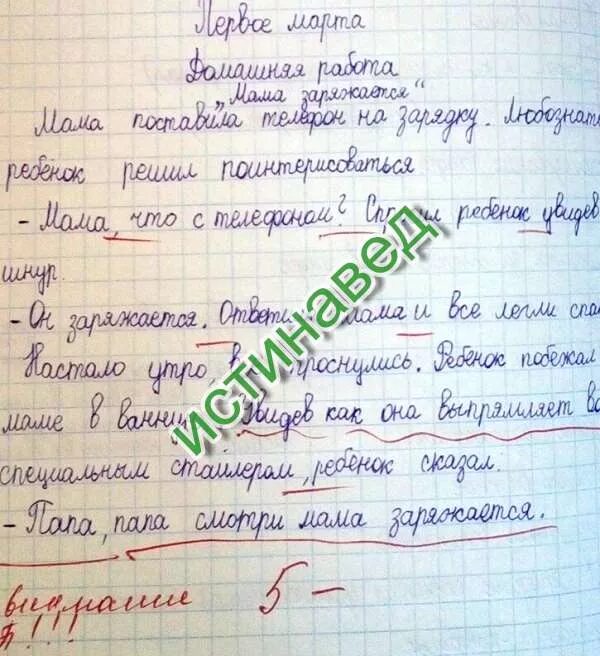 Первое марта
Домашняя работа
„Мама заряжается“
Мама поставила телефон на зарядку. Любознат
ребёнок решил поинтерисоваться
- Мама, что с телефоном? Спр л ребёнок увидев
шнур.
- Он заряжается. Ответи мама и все легли спа
Настало утро, в проснулись. Ребёнок побежал
маме в ванн Увидев как она выпрямляет во
специальным стайлером, ребёнок сказал.
- Папа, папа смотри мама заряжается.
5 -
!!!
истинавед